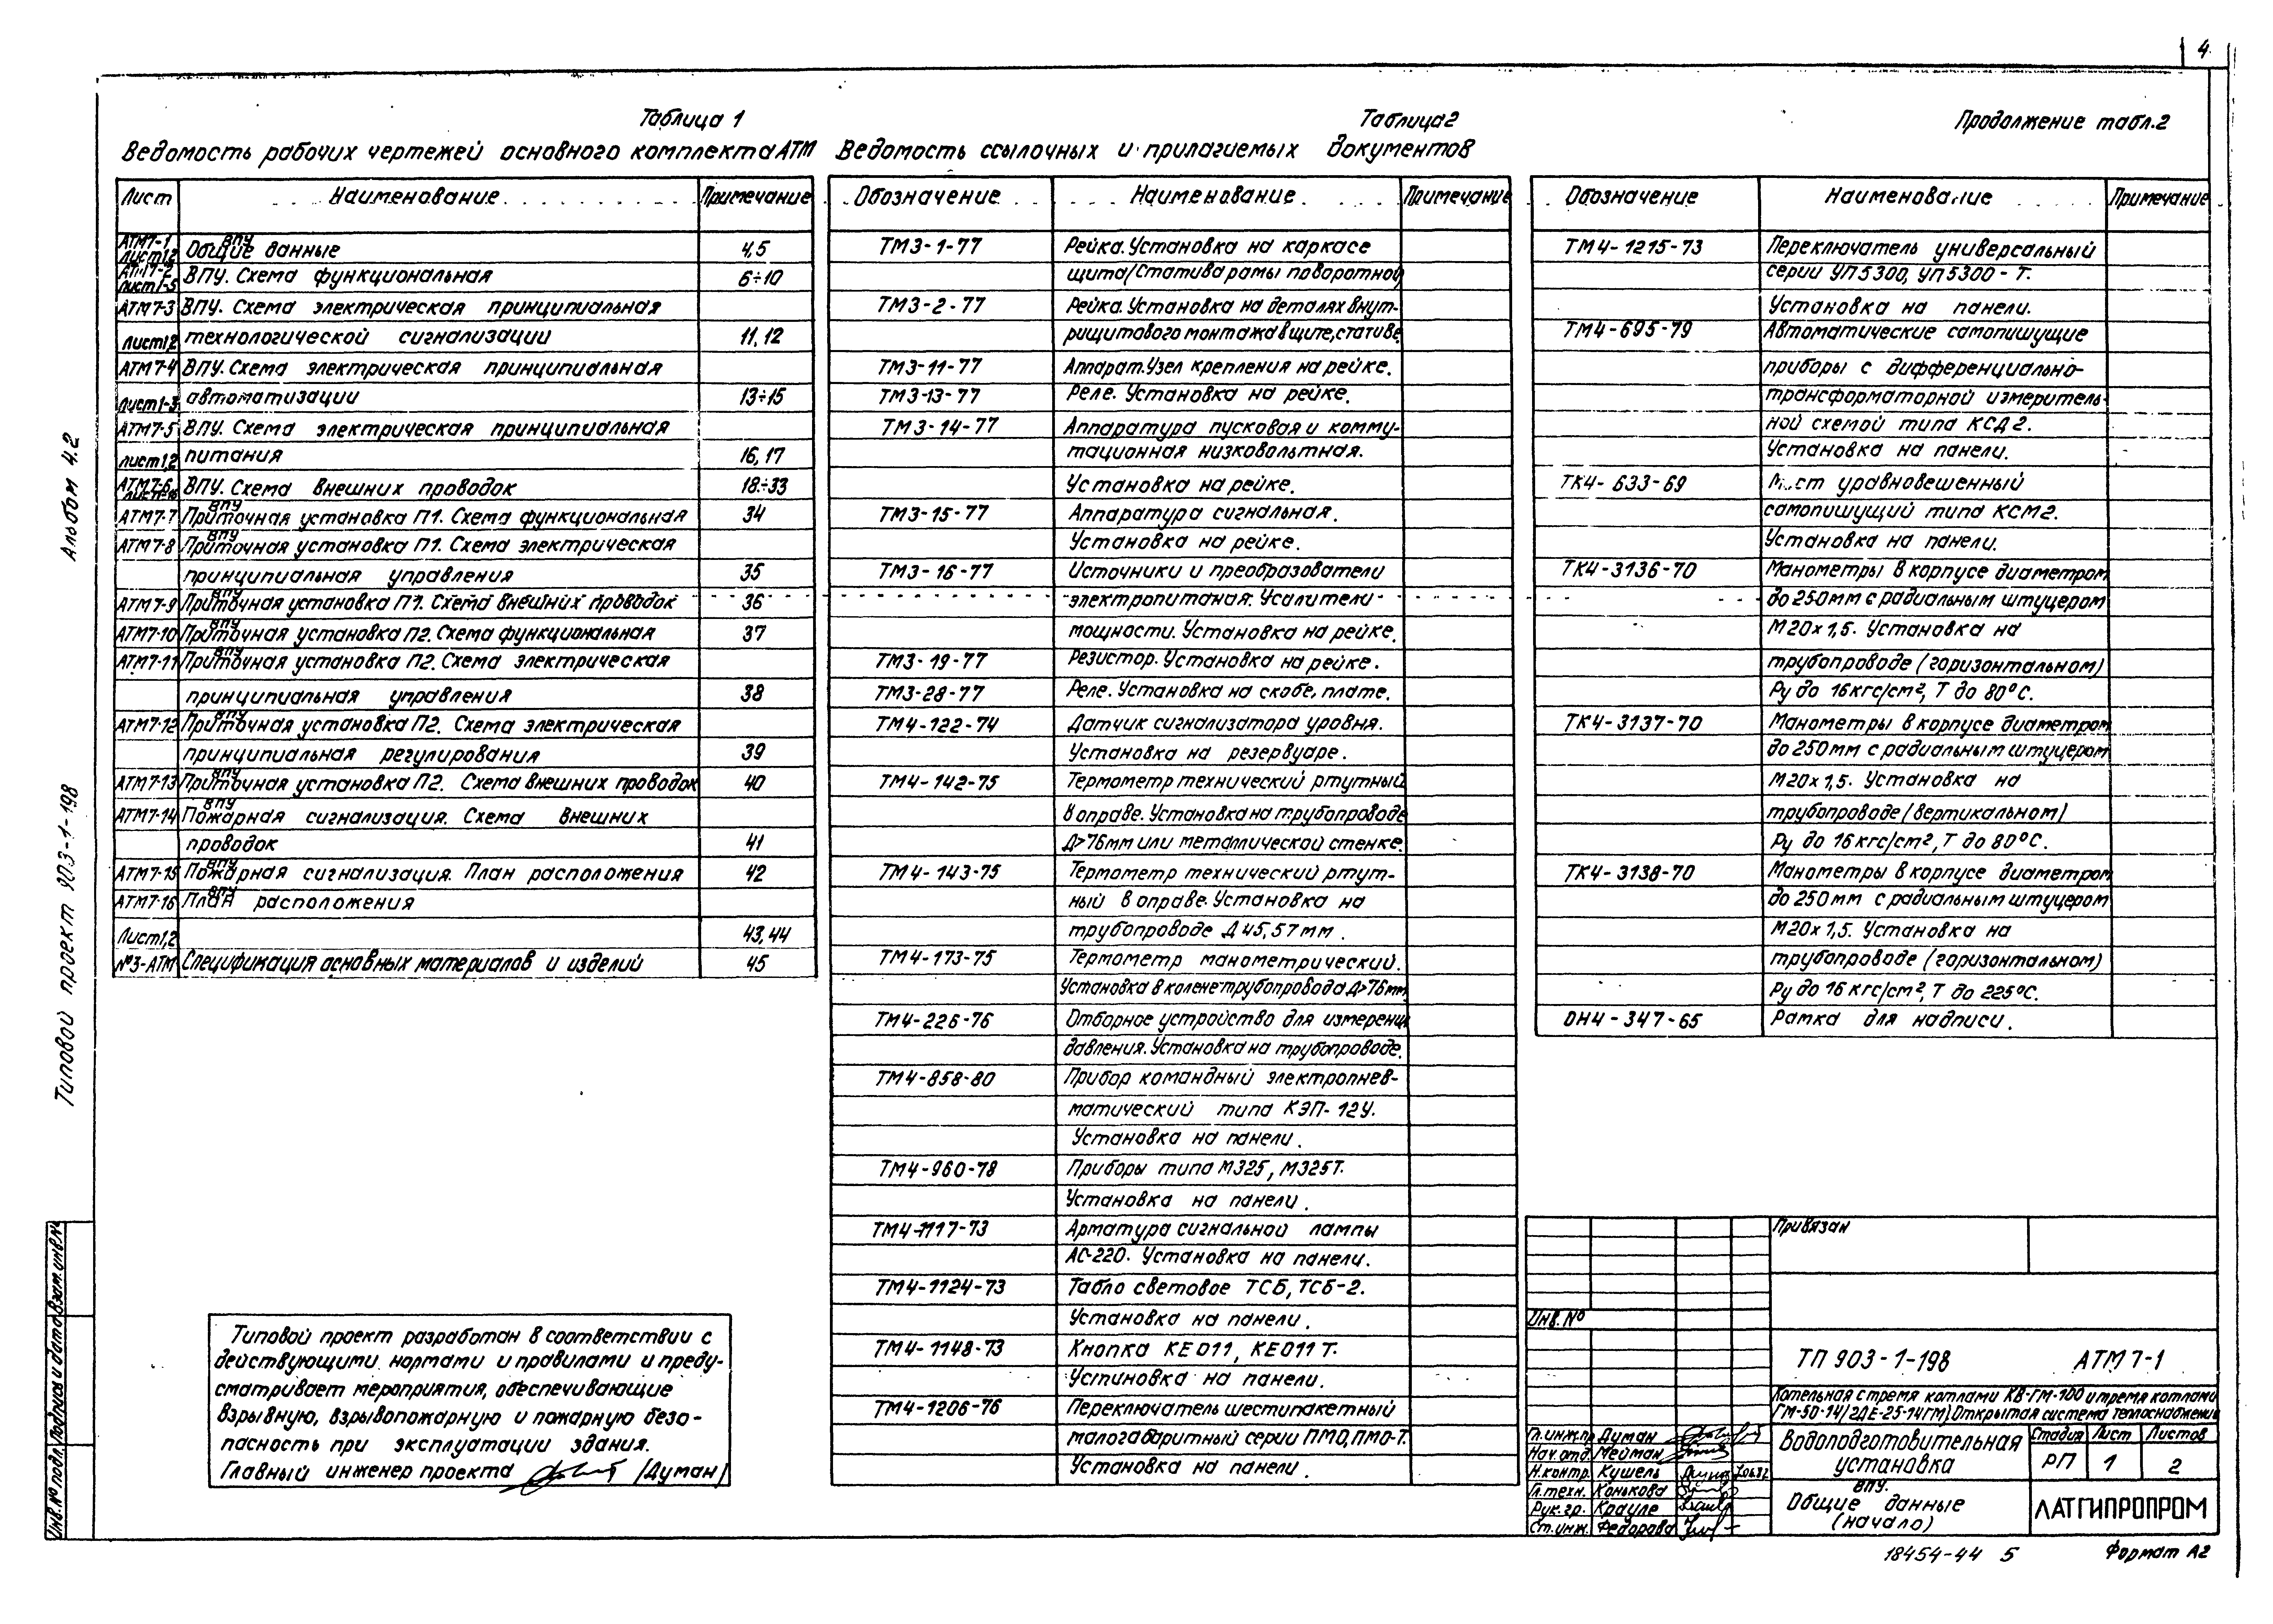 4
Таблица 1
Ведомость рабочих чертежей основного комплекта АТМ
Лист Наименование Примечание
АТМ7-1 ВПУ
Лист1,2 Общие данные 4,5
АТМ7-2
лист1-5 ВПУ. Схема функциональная 6÷10
АТМ7-3 ВПУ. Схема электрическая принципиальная
лист1,2 технологической сигнализации 11,12
АТМ7-4 ВПУ. Схема электрическая принципиальная
лист1-3 автоматизации 13÷15
АТМ7-5 ВПУ. Схема электрическая принципиальная
лист1,2 питания 16,17
АТМ7-6 ВПУ. Схема внешних проводок 18÷33
ВПУ
АТМ7-7 Приточная установка П1. Схема функциональная 34
ВПУ
АТМ7-8 Приточная установка П1. Схема электрическая
принципиальная управления 35
ВПУ
АТМ7-9 Приточная установка П1. Схема внешних проводок 36
ВПУ
АТМ7-10 Приточная установка П2. Схема функциональная 37
ВПУ
АТМ7-11 Приточная установка П2. Схема электрическая
принципиальная управления 38
ВПУ
АТМ7-12 Приточная установка П2. Схема электрическая
принципиальная регулирования 39
ВПУ
АТМ7-13 Приточная установка П2. Схема внешних проводок 40
ВПУ
АТМ7-14 Пожарная сигнализация. Схема внешних
проводок 41
ВПУ
АТМ7-15 Пожарная сигнализация. План расположения 42
ВПУ
АТМ7-16 План расположения
Лист1,2 43,44
№3-АТМ Спецификация основных материалов и изделий 45
Типовой проект разработан в соответствии с
действующими нормами и правилами и преду-
сматривает мероприятия, обеспечивающие
взрывную, взрывопожарную и пожарную безо-
пасность при эксплуатации здания.
Главный инженер проекта /Думан/
Таблица 2
Ведомость ссылочных и прилагаемых документов
Обозначение Наименование Примечание
ТМ3-1-77 Рейка. Установка на каркасе
щита/статива рамы поворотной/
ТМ3-2-77 Рейка. Установка на деталях внут-
рищитового монтажа в щите, стативе
ТМ3-11-77 Аппарат. Узел крепления на рейке.
ТМ3-13-77 Реле. Установка на рейке.
ТМ3-14-77 Аппаратура пусковая и комму-
тационная низковольтная.
Установка на рейке.
ТМ3-15-77 Аппаратура сигнальная.
Установка на рейке.
ТМ3-16-77 Источники и преобразователи
электропитания. Усилители
мощности. Установка на рейке.
ТМ3-19-77 Резистор. Установка на рейке.
ТМ3-28-77 Реле. Установка на скобе, плате.
ТМ4-122-74 Датчик сигнализатора уровня.
Установка на резервуаре.
ТМ4-142-75 Термометр технический ртутный
в оправе. Установка на трубопроводе
Д>76мм или металлической стенке.
ТМ4-143-75 Термометр технический ртут-
ный в оправе. Установка на
трубопроводе Д 45, 57мм.
ТМ4-173-75 Термометр манометрический.
Установка в колене трубопровода Д>76мм
ТМ4-226-76 Отборное устройство для измерени
давления. Установка на трубопроводе.
ТМ4-858-80 Прибор командный электропнев-
матический типа КЭП-12У.
Установка на панели.
ТМ4-960-78 Приборы типа М325, М325Т.
Установка на панели.
ТМ4-1117-73 Арматура сигнальной лампы
АС-220. Установка на панели.
ТМ4-1124-73 Табло световое ТСБ, ТСБ-2.
Установка на панели.
ТМ4-1148-73 Кнопка КЕ011, КЕ011Т.
Установка на панели.
ТМ4-1206-76 Переключатель шестипакетный
малогабаритный серии ПМО, ПМО-Т.
Установка на панели.
Продолжение табл.2
Обозначение Наименование Примечание
ТМ4-1215-73 Переключатель универсальный
серии УП5300, УП5300-Т.
Установка на панели.
ТМ4-695-79 Автоматические самопишущие
приборы с дифференциально-
трансформаторной измеритель-
ной схемой типа КСД2.
Установка на панели.
ТК4-633-69 Мост уравновешенный
самопишущий типа КСМ2.
Установка на панели.
ТК4-3136-70 Манометры в корпусе диаметром
до 250мм с радиальным штуцером
М20х1,5. Установка на
трубопроводе (горизонтальном)
Ру до 16кгс/см², Т до 80°С.
ТК4-3137-70 Манометры в корпусе диаметром
до 250мм с радиальным штуцером
М20х1,5. Установка на
трубопроводе (вертикальном)
Ру до 16кгс/см², Т до 80°С.
ТК4-3138-70 Манометры в корпусе диаметром
до 250мм с радиальным штуцером
М20х1,5. Установка на
трубопроводе (горизонтальном)
Ру до 16 кгс/см², Т до 225°С.
ОН4-347-65 Рамка для надписи.
Привязан
Инв.№
ТП 903-1-198 АТМ7-1
Котельная с тремя котлами КВ-ГМ-100 и тремя котлами
ГМ-50-14/2ДЕ-25-14ГМ/Открытая система теплоснабжения
Гл.инж.пр Думан
Нач.отд. Мейман
Н.контр. Кушель
Гл.техн. Конькова
Рук.гр. Крауле
Ст.инж. Федорова
Водоподготовительная
установка
Стадия Лист Листов
РП 1 2
ВПУ.
Общие данные
(начало)
ЛАТГИПРОПРОМ
18454-44 5 Формат А2
Альбом 4.2
Типовой проект 903-1-198
Инв.№ подл. Подпись и дата Взам.инв.№